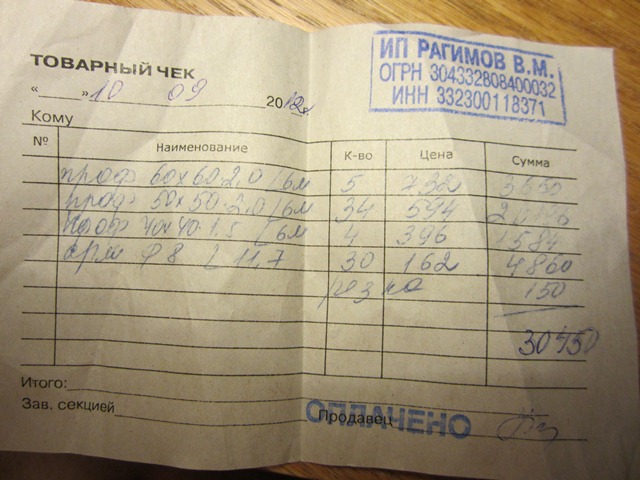 ИП РАГИМОВ В.М.
ОГРН 304332808400032
ИНН 332300118371
ТОВАРНЫЙ ЧЕК
« » 10 09 2012г.
Кому
№ Наименование К-во Цена Сумма
проф 60х60·2,0 L 6м 5 732 3660
проф 50х50·2,0 L 6м 34 594 20196
проф 40х40·1.5 L 6м 4 396 1584
арм Ф8 L 11,7 30 162 4860
резка 150
30450
Итого:
Зав. секцией Продавец
ОПЛАЧЕНО